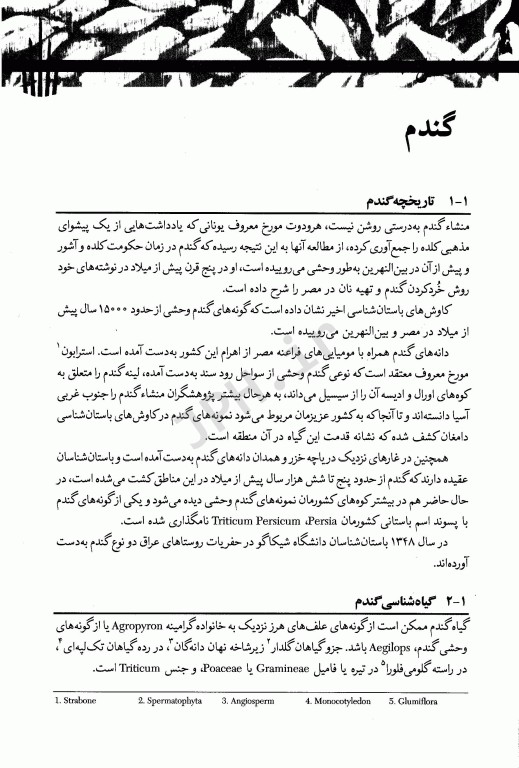 گندم
۱-۱ تاریخچه گندم
منشاء گندم به‌درستی روشن نیست، هرودوت مورخ معروف یونانی که یادداشت‌هایی از یک پیشوای
مذهبی کلده را جمع‌آوری کرده، از مطالعه آنها به این نتیجه رسیده که گندم در زمان حکومت کلده و آشور
و پیش از آن در بین‌النهرین به‌طور وحشی می‌روییده است، او در پنج قرن پیش از میلاد در نوشته‌های خود
روش خُرد کردن گندم و تهیه نان در مصر را شرح داده است.
کاوش‌های باستان‌شناسی اخیر نشان داده است که گونه‌های گندم وحشی از حدود ۱۵۰۰۰ سال پیش
از میلاد در مصر و بین‌النهرین می‌روییده است.
دانه‌های گندم همراه با مومیایی‌های فراعنه مصر از اهرام این کشور به‌دست آمده است. استرابون۱
مورخ معروف معتقد است که نوعی گندم وحشی از سواحل رود سند به‌دست آمده، لینه گندم را متعلق به
کوه‌های اورال و ادیسه آن را از سیسیل می‌داند، به هر حال بیشتر پژوهشگران منشاء گندم را جنوب غربی
آسیا دانسته‌اند و تا آنجا که به کشور عزیزمان مربوط می‌شود نمونه‌های گندم در کاوش‌های باستان‌شناسی
دامغان کشف شده که نشانه قدمت این گیاه در آن منطقه است.
همچنین در غارهای نزدیک دریاچه خزر و همدان دانه‌های گندم به‌دست آمده است و باستان‌شناسان
عقیده دارند که گندم از حدود پنج تا شش هزار سال پیش از میلاد در این مناطق کشت می‌شده است، در
حال حاضر هم در بیشتر کوه‌های کشورمان نمونه‌های گندم وحشی دیده می‌شود و یکی از گونه‌های گندم
با پسوند اسم باستانی کشورمان Persia، Triticum Persicum نامگذاری شده است.
در سال ۱۳۴۸ باستان‌شناسان دانشگاه شیکاگو در حفریات روستاهای عراق دو نوع گندم به‌دست
آورده‌اند.
۲-۱ گیاه‌شناسی گندم
گیاه گندم ممکن است از گونه‌های علف‌های هرز نزدیک به خانواده گرامینه Agropyron یا از گونه‌های
وحشی گندم، Aegilops باشد. جزو گیاهان گلدار۲ زیرشاخه نهان دانه‌گان۳، در رده گیاهان تک‌لپه‌ای۴،
در راسته گلومی‌فلورا۵ در تیره یا فامیل Gramineae یا Poaceae، و جنس Triticum است.
1. Strabone 2. Spermatophyta 3. Angiosperm 4. Monocotyledon 5. Glumiflora